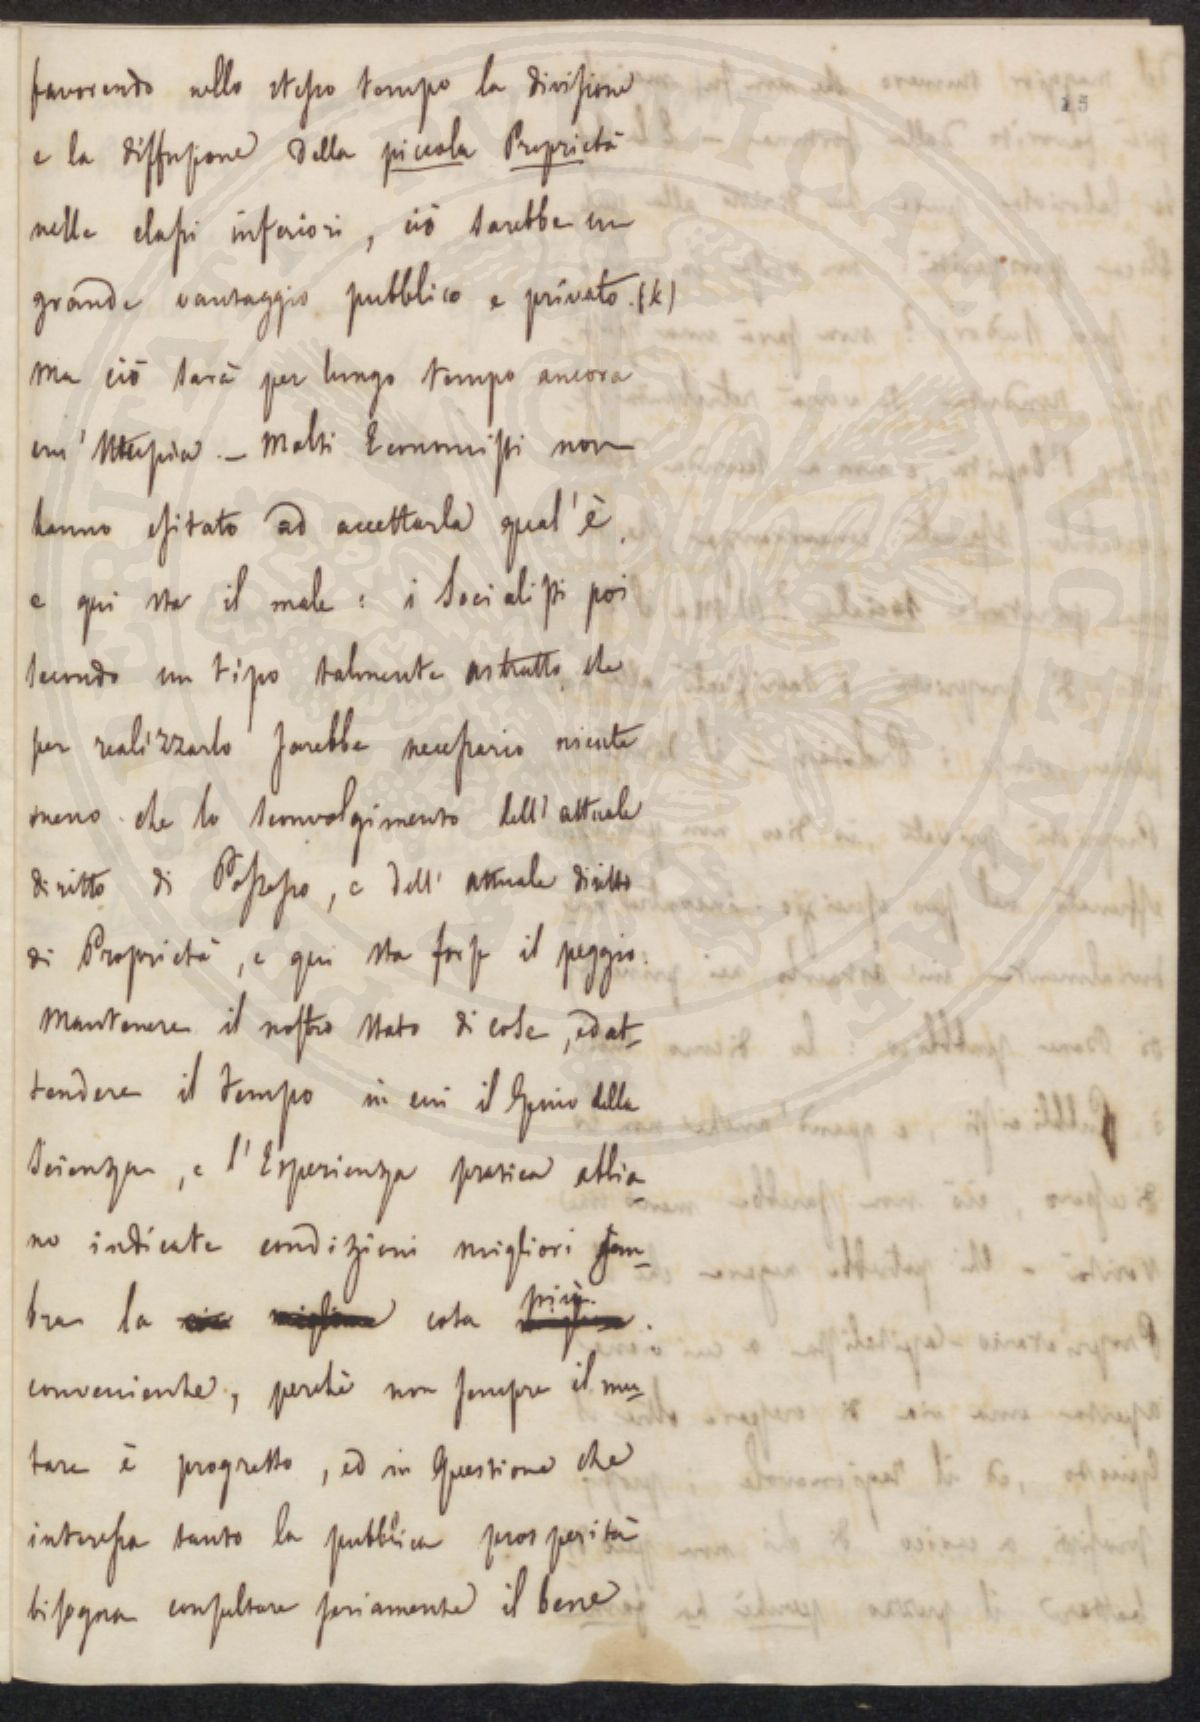 15
favorendo nello stesso tempo la divisione
e la diffusione della piccola Proprietà
nelle classi inferiori, ciò sarebbe un
grande vantaggio pubblico e privato. (k)
Ma ciò sarà per lungo tempo ancora
un' Utopia. – Molti Economisti non
hanno esitato ad accettarla qual' è,
e qui sta il male: i Socialisti poi
secondo un tipo talmente astratto, che
per realizzarlo sarebbe necessario niente
meno che lo sconvolgimento dell' attuale
diritto di Possesso, e dell' attuale diritto
di Proprietà, e qui sta forse il peggio.
Mantenere il nostro stato di cose, ed at-
tendere il tempo in cui il Genio della
Scienza, e l' Esperienza pratica abbia-
no indicate condizioni migliori sem-
bra la cosa più
conveniente, perchè non sempre il mu-
tare è progresso, ed in Questione che
interessa tanto la pubblica prosperità
bisogna consultare seriamente il bene